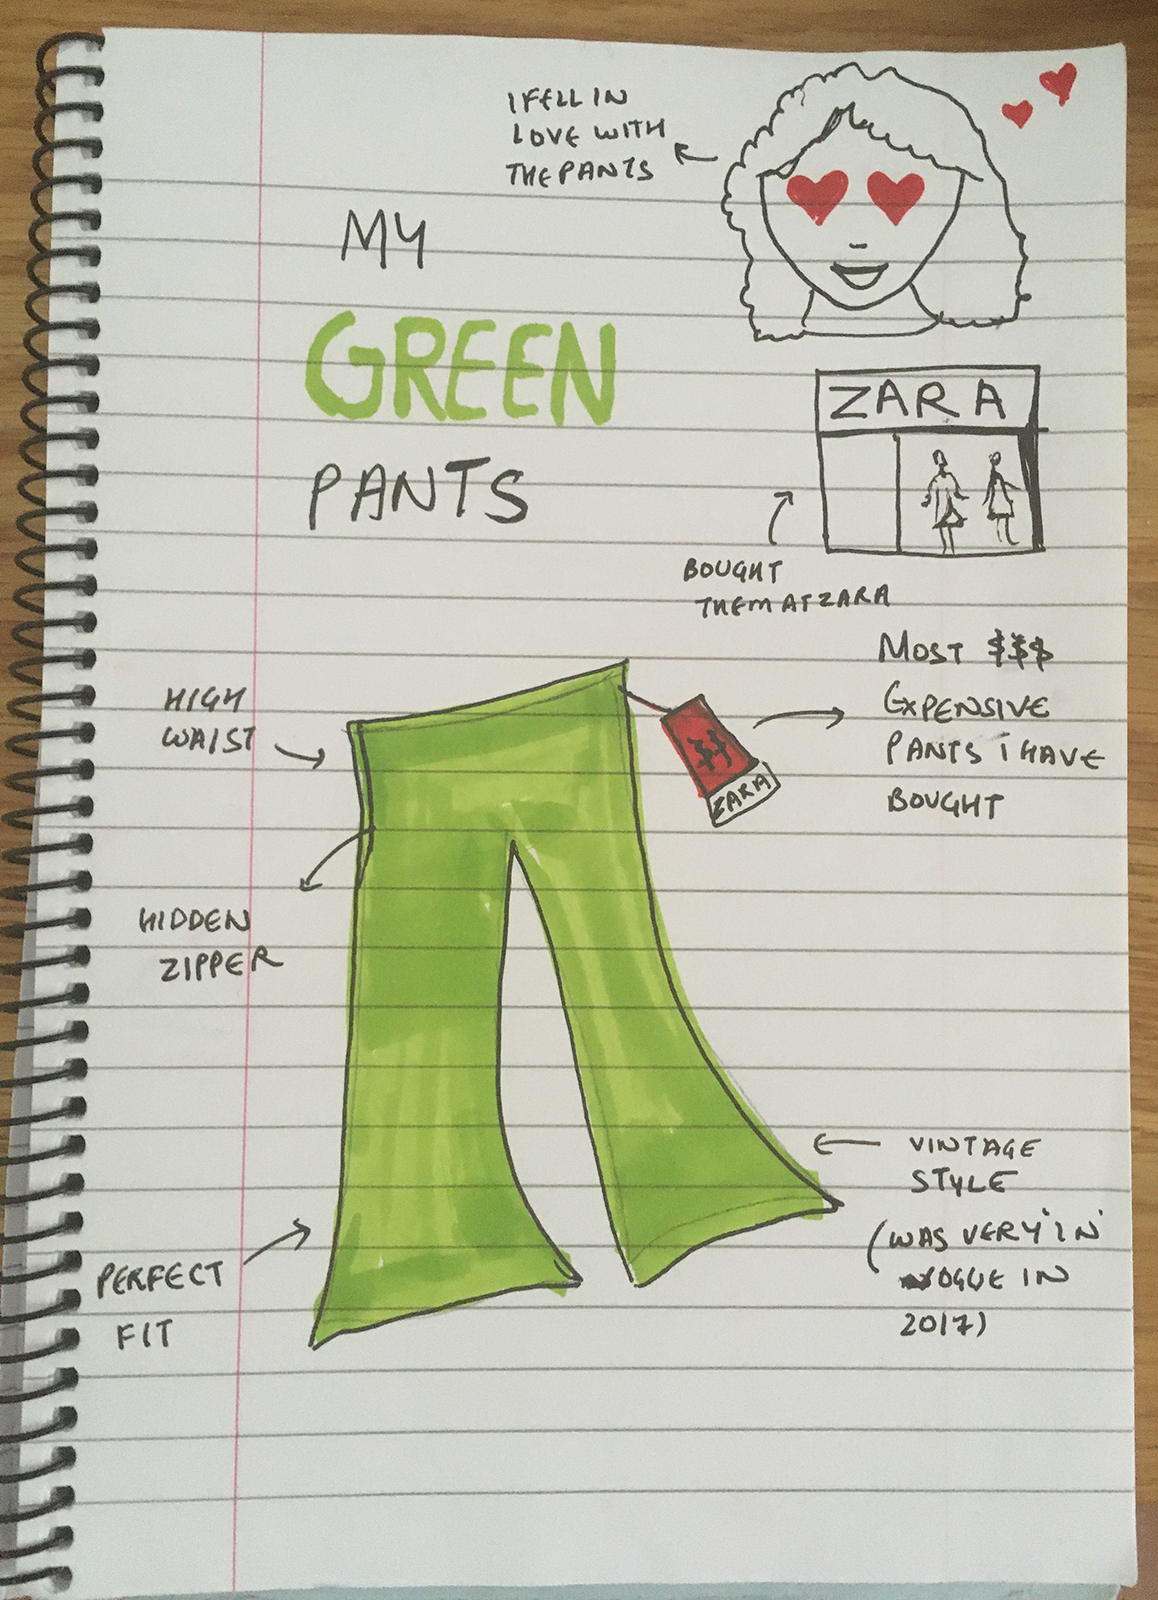 I FELL IN
LOVE WITH
THE PANTS
MY
GREEN
PANTS
ZARA
BOUGHT
THEM AT ZARA
MOST $$$
EXPENSIVE
PANTS I HAVE
BOUGHT
$$
ZARA
HIGH
WAIST
HIDDEN
ZIPPER
VINTAGE
STYLE
(WAS VERY 'IN'
VOGUE IN
2017)
PERFECT
FIT